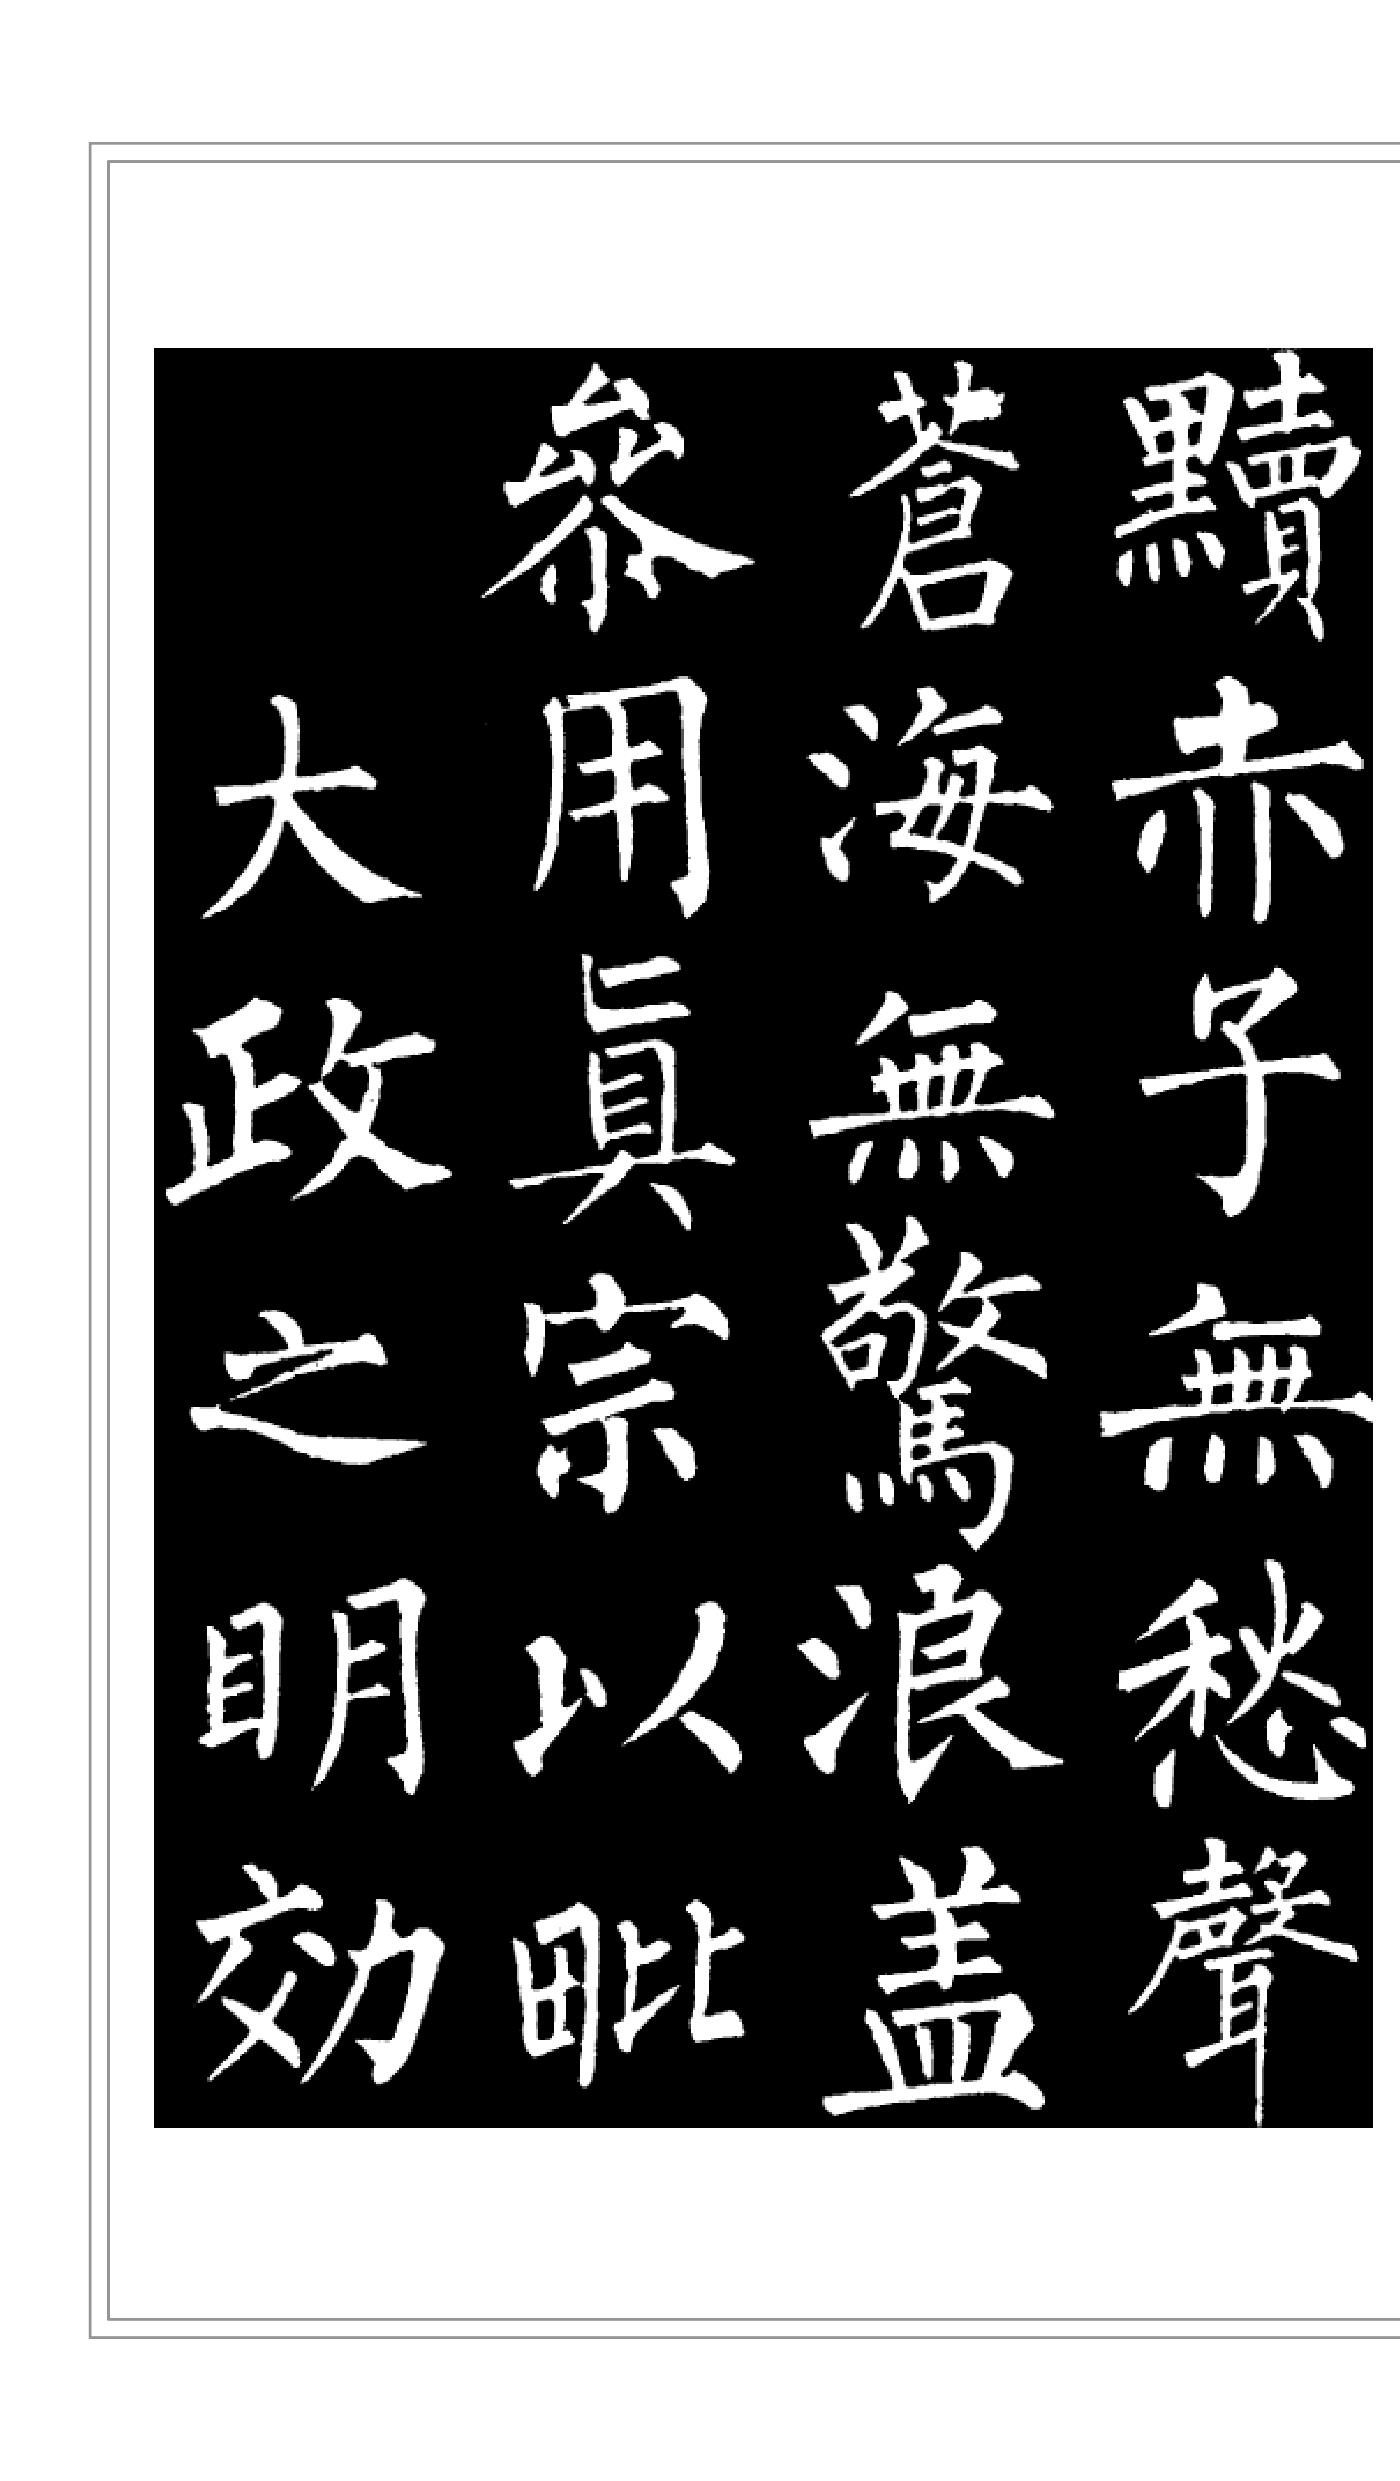 黷赤子無愁聲
蒼海無驚浪盖
叅用眞宗以毗
大政之明効